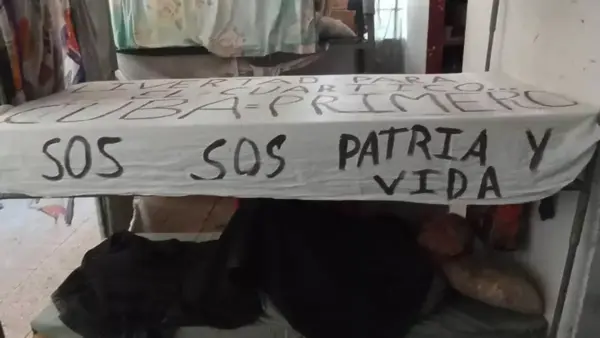 LIVERTAD PARA
CUARTICO
CUBA=PRIMERO
SOS SOS PATRIA Y
VIDA